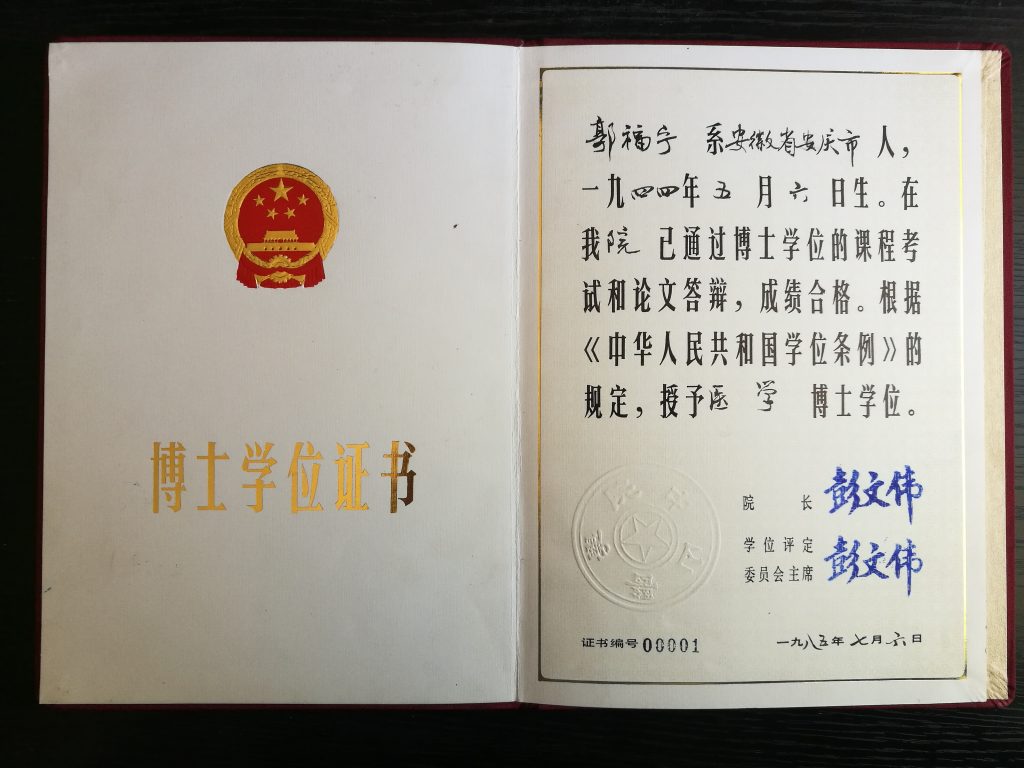 博士学位证书
郭福宁 系安徽省安庆市 人，
一九四四年 五 月 六 日生。在
我院 已通过博士学位的课程考
试和论文答辩，成绩合格。根据
《中华人民共和国学位条例》的
规定，授予医 学 博士学位。
院 长 彭文伟
学位评定
委员会主席 彭文伟
证书编号 00001
一九八五年 七 月 六 日